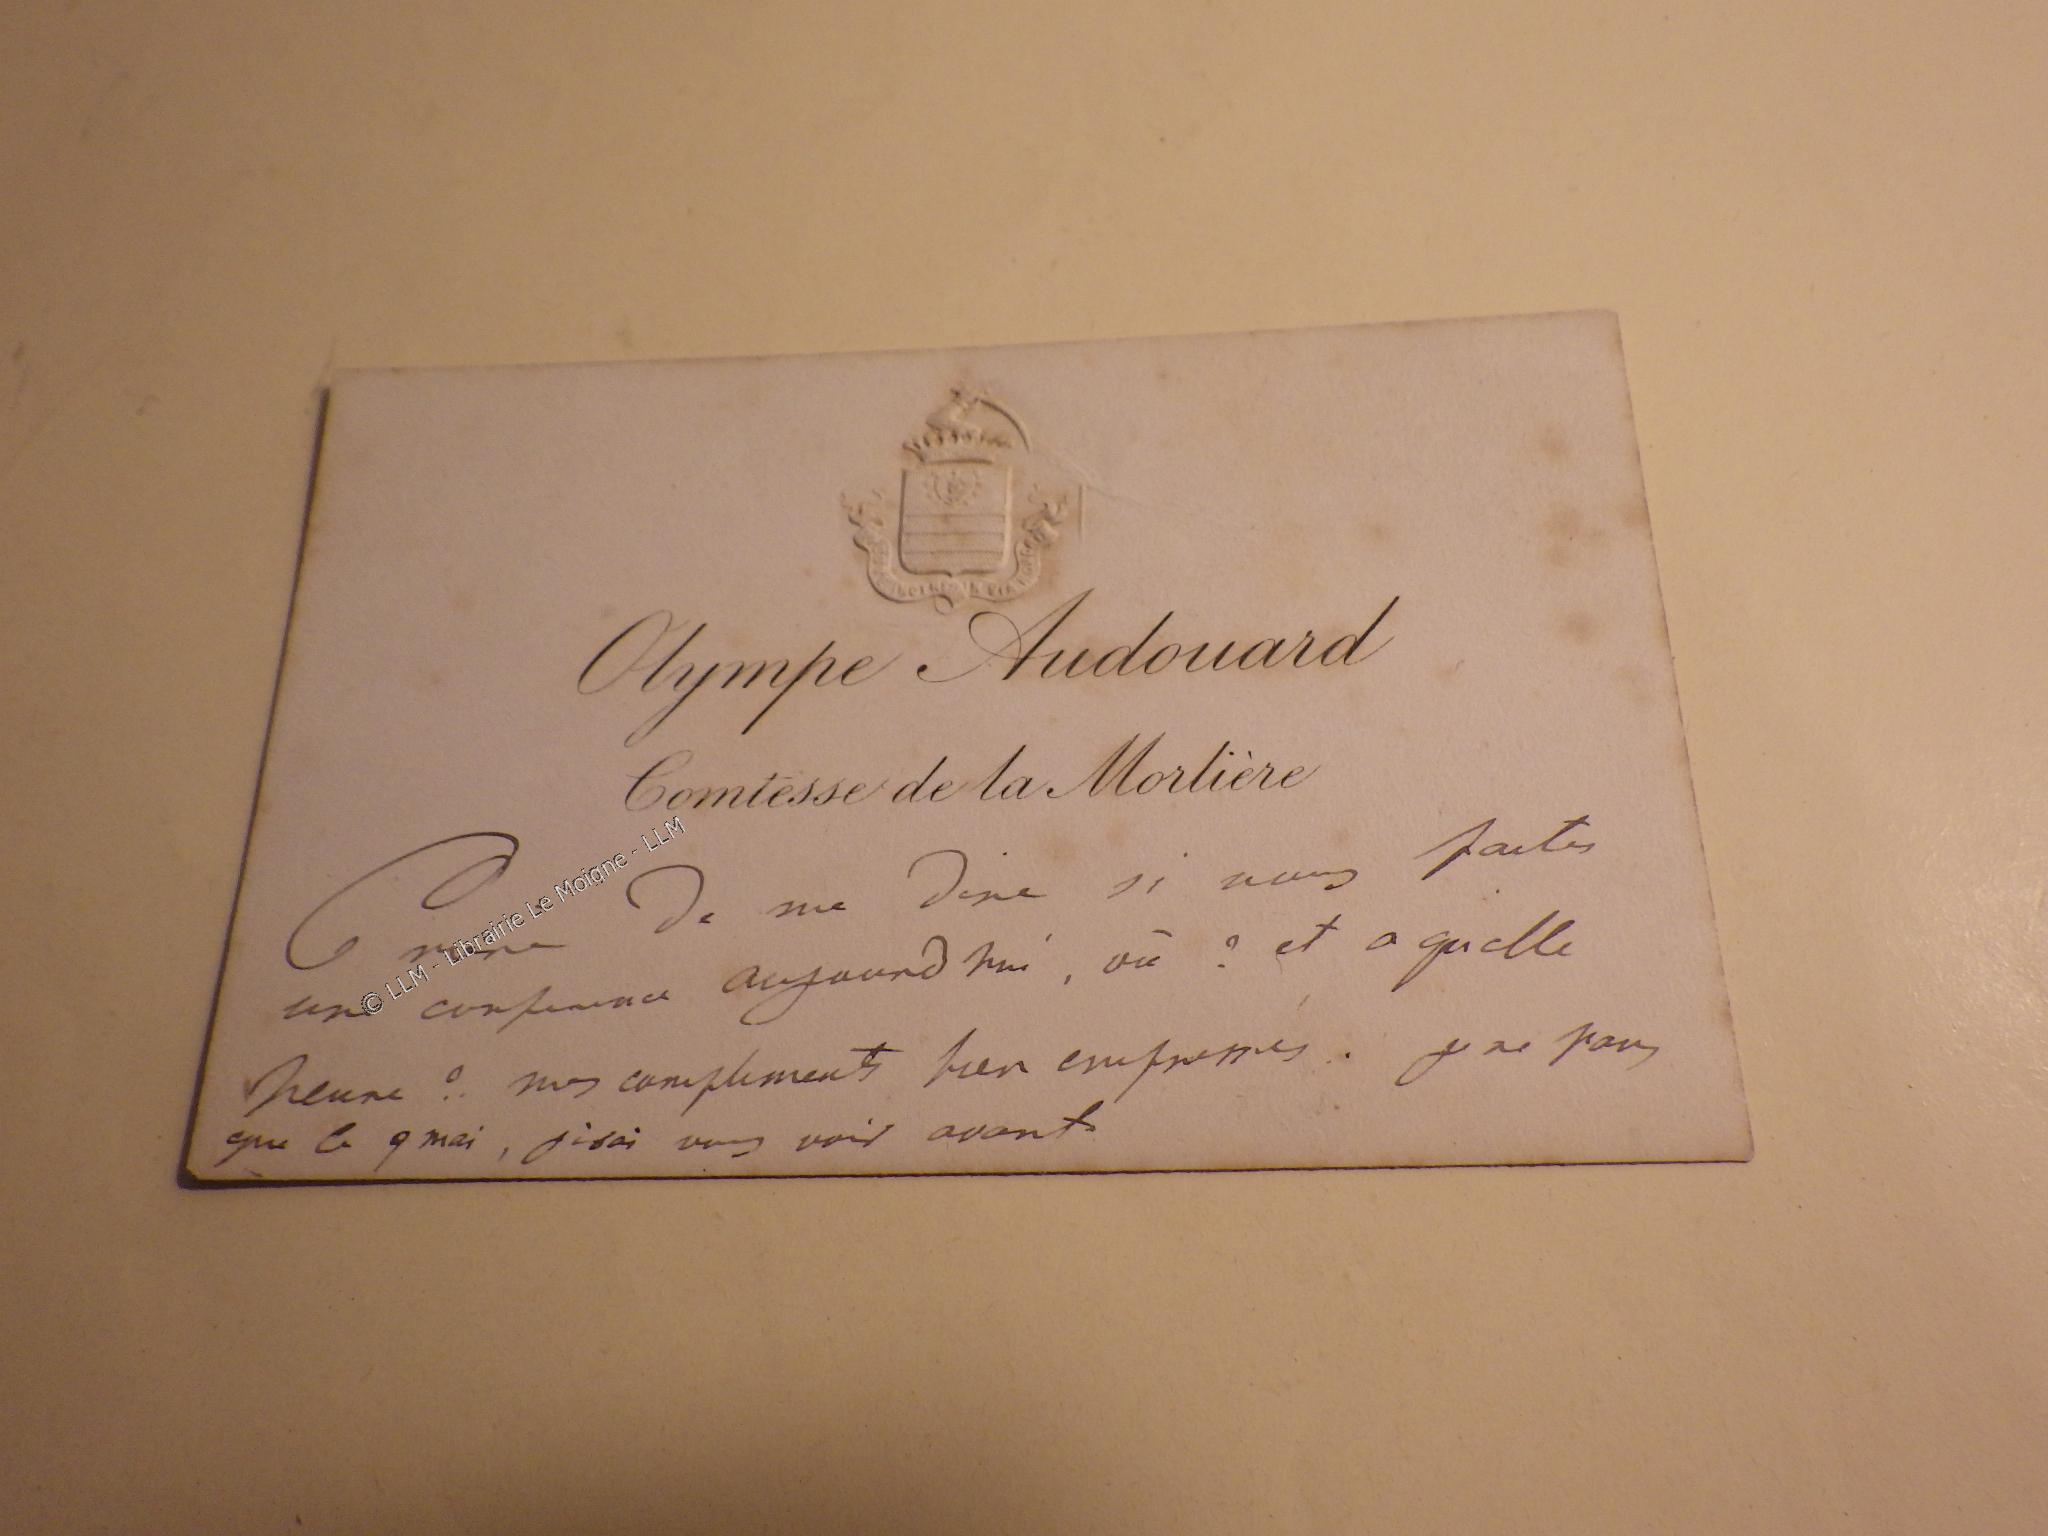 Olympe Audouard
Comtesse de la Morlière
Prière de me dire si vous faites
une conference aujourd'hui, où ? et a quelle
heure ? mes compliments bien empressés. je ne pars
que le 9 mai, j'irai vous voir avant
© LLM - Librairie Le Moigne - LLM